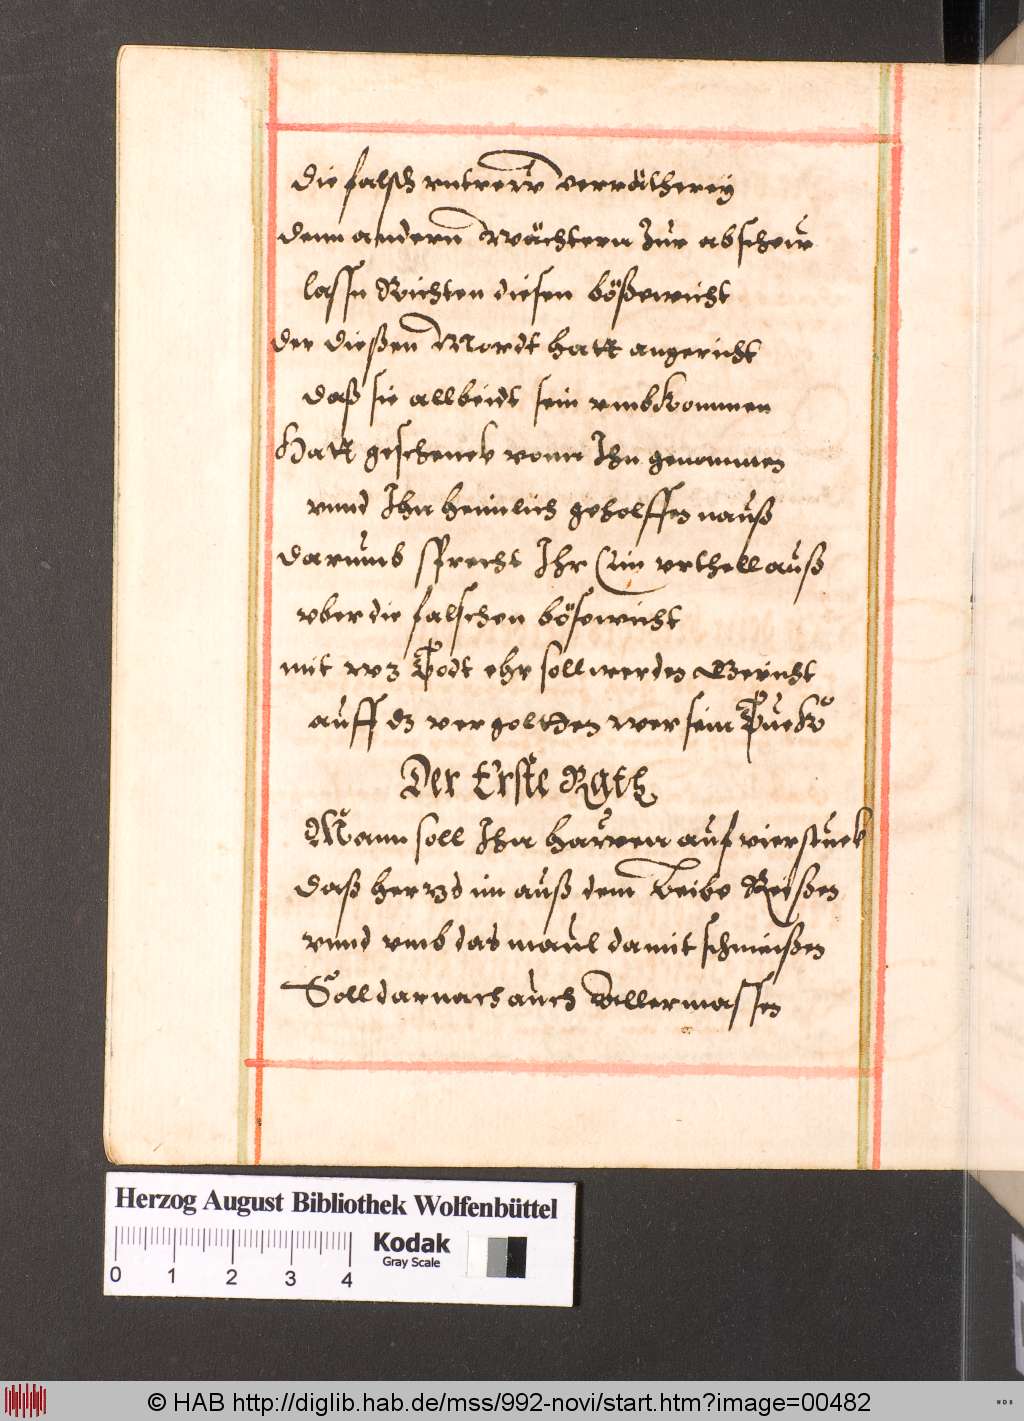 die falsch vntrew verrätherey
denn andern Wächtern Zur abschew
lassn Richten diesen bößewicht
der dießen Mordt hatt angericht
daß sie allbeidt sein vmbkommen
Hatt geschenck vonn Ihn genommen
vnnd Ihn heimlich geholffen nauß
darumb sprecht Ihr Ein vrthell auß
vber die falschen bösewicht
mit wz Todt ehr soll werden Gericht
auff dz vergoltten wer sein Tück
Der Erste Rath
Mann soll Ihn hawen auf vier stuck
daß hertz im auß dem Leibe Reißen
vnnd vmb das maul damit schmeißen
Soll darnach auch Allermassen
Herzog August Bibliothek Wolfenbüttel
0 1 2 3 4
Kodak
Gray Scale
© HAB http://diglib.hab.de/mss/992-novi/start.htm?image=00482